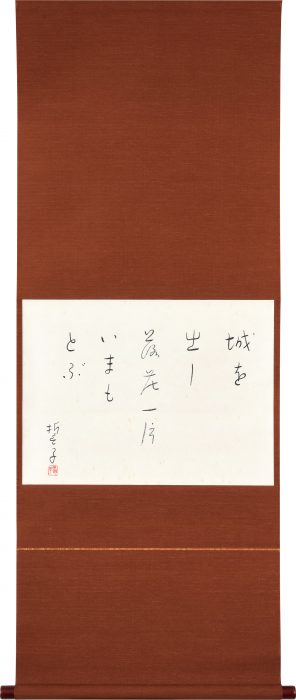 城を
出し
落花一片
いまも
とぶ
誓子